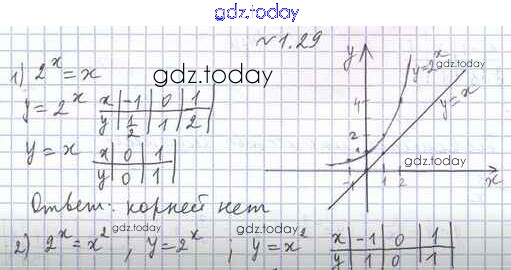 gdz.today
№1.29
1) 2^x = x
gdz.today
y = 2^x
x | -1 | 0 | 1
y | 1/2 | 1 | 2
y = x
x | 0 | 1
y | 0 | 1
y
y=2^x
gdz.today
y=x
4
2
1
gdz.today
-1 1 2 x
Ответ: корней нет
2) 2^x = x^2, y = 2^x; y = x^2
gdz.today
x | -1 | 0 | 1
y | 1 | 0 | 1
gdz.today